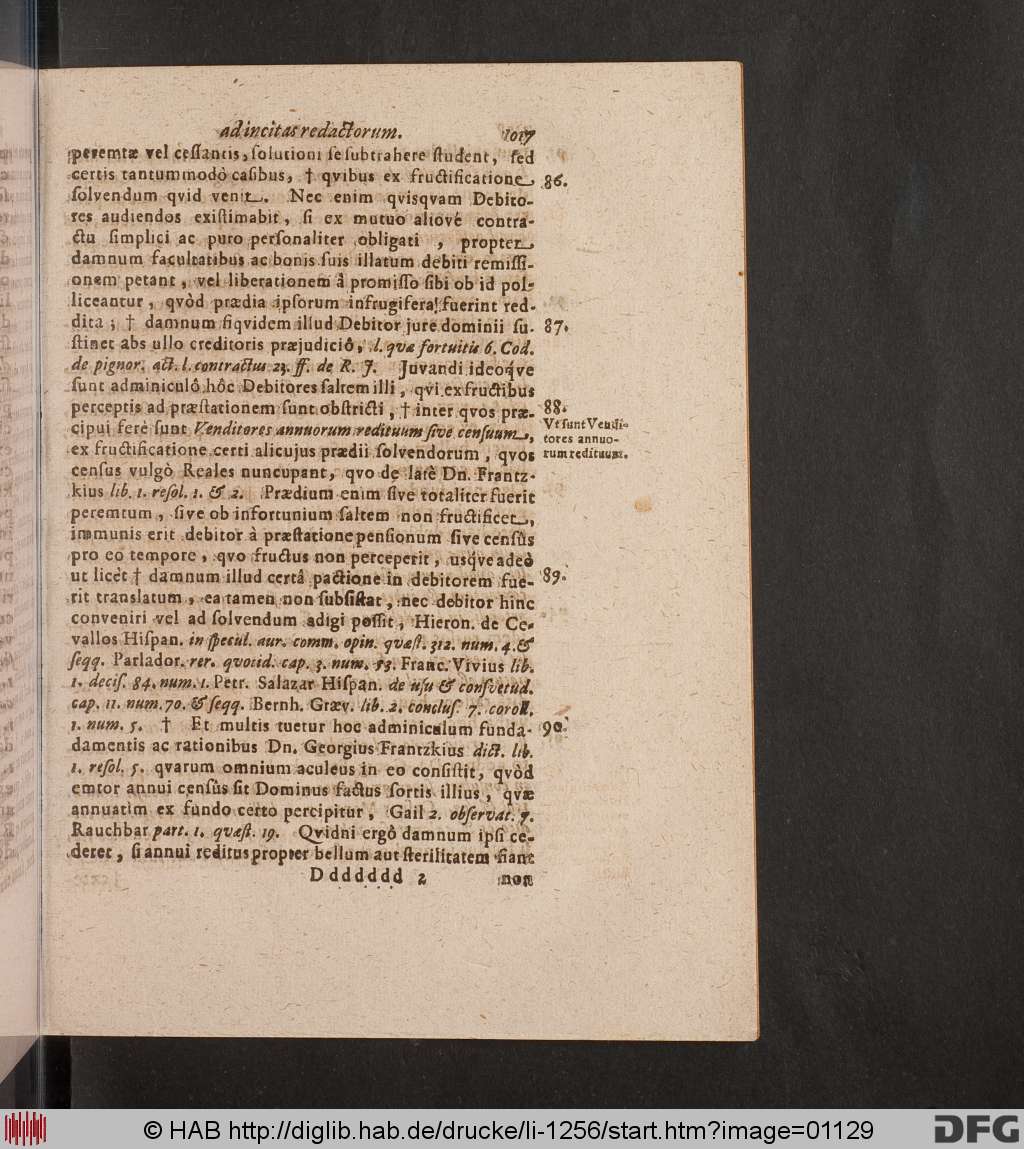 ad incitas redactorum. 1017
peremtæ vel ceſſantis, ſolutioni ſe ſubtrahere ſtudent, ſed
certis tantummodò caſibus, † qvibus ex fructificatione 86.
ſolvendum qvid venit. Nec enim qvisqvam Debito-
res audiendos exiſtimabit, ſi ex mutuo aliové contra-
ctu ſimplici ac puro perſonaliter obligati, propter
damnum facultatibus ac bonis ſuis illatum debiti remiſſi-
onem petant, vel liberationem â promiſſo ſibi ob id pol-
liceantur, qvòd prædia ipſorum infrugifera fuerint red-
dita; † damnum ſiqvidem illud Debitor jure dominii ſu- 87.
ſtinet abs ullo creditoris præjudiciô, l. quæ fortuitis 6. Cod.
de pignor. act. l. contractus 23. ff. de R. J. Juvandi ideoq́ve
ſunt adminiculô hôc Debitores ſaltem illi, qvi ex fructibus
perceptis ad præſtationem ſunt obſtricti, † inter qvos præ- 88.
cipui ferè ſunt Venditores annuorum redituum ſive cenſuum,
Vt ſunt Vendi-
tores annuo-
rum redituum.
ex fructificatione certi alicujus prædii ſolvendorum, qvos
cenſus vulgò Reales nuncupant, qvo de latè Dn. Frantz-
kius lib. 1. reſol. 1. & 2. Prædium enim ſive totaliter fuerit
peremtum, ſive ob infortunium ſaltem non fructificet,
immunis erit debitor à præſtatione penſionum ſive cenſûs
pro eo tempore, qvo fructus non perceperit, usq́ve adeò
ut licèt † damnum illud certâ pactione in debitorem fue- 89.
rit translatum, ea tamen non ſubſiſtat, nec debitor hinc
conveniri vel ad ſolvendum adigi poſſit, Hieron. de Ce-
vallos Hiſpan. in ſpecul. aur. comm. opin. quæſt. 312. num. 4. &
ſeqq. Parlador. rer. quotid. cap. 3. num. 13. Franc. Vivius lib.
1. deciſ. 84. num. 1. Petr. Salazar Hiſpan. de uſu & conſvetud.
cap. 11. num. 70. & ſeqq. Bernh. Græv. lib. 2. concluſ. 7. coroll.
1. num. 5. † Et multis tuetur hoc adminiculum funda- 90.
damentis ac rationibus Dn. Georgius Frantzkius dict. lib.
1. reſol. 5. qvarum omnium aculeus in eo conſiſtit, qvòd
emtor annui cenſûs ſit Dominus factus ſortis illius, qvæ
annuatim ex fundo certo percipitur, Gail 2. obſervat. 7.
Rauchbar part. 1. quæſt. 19. Qvidni ergô damnum ipſi ce-
deret, ſi annui reditus propter bellum aut ſterilitatem fiant
D dddddd 2 non
© HAB http://diglib.hab.de/drucke/li-1256/start.htm?image=01129
DFG